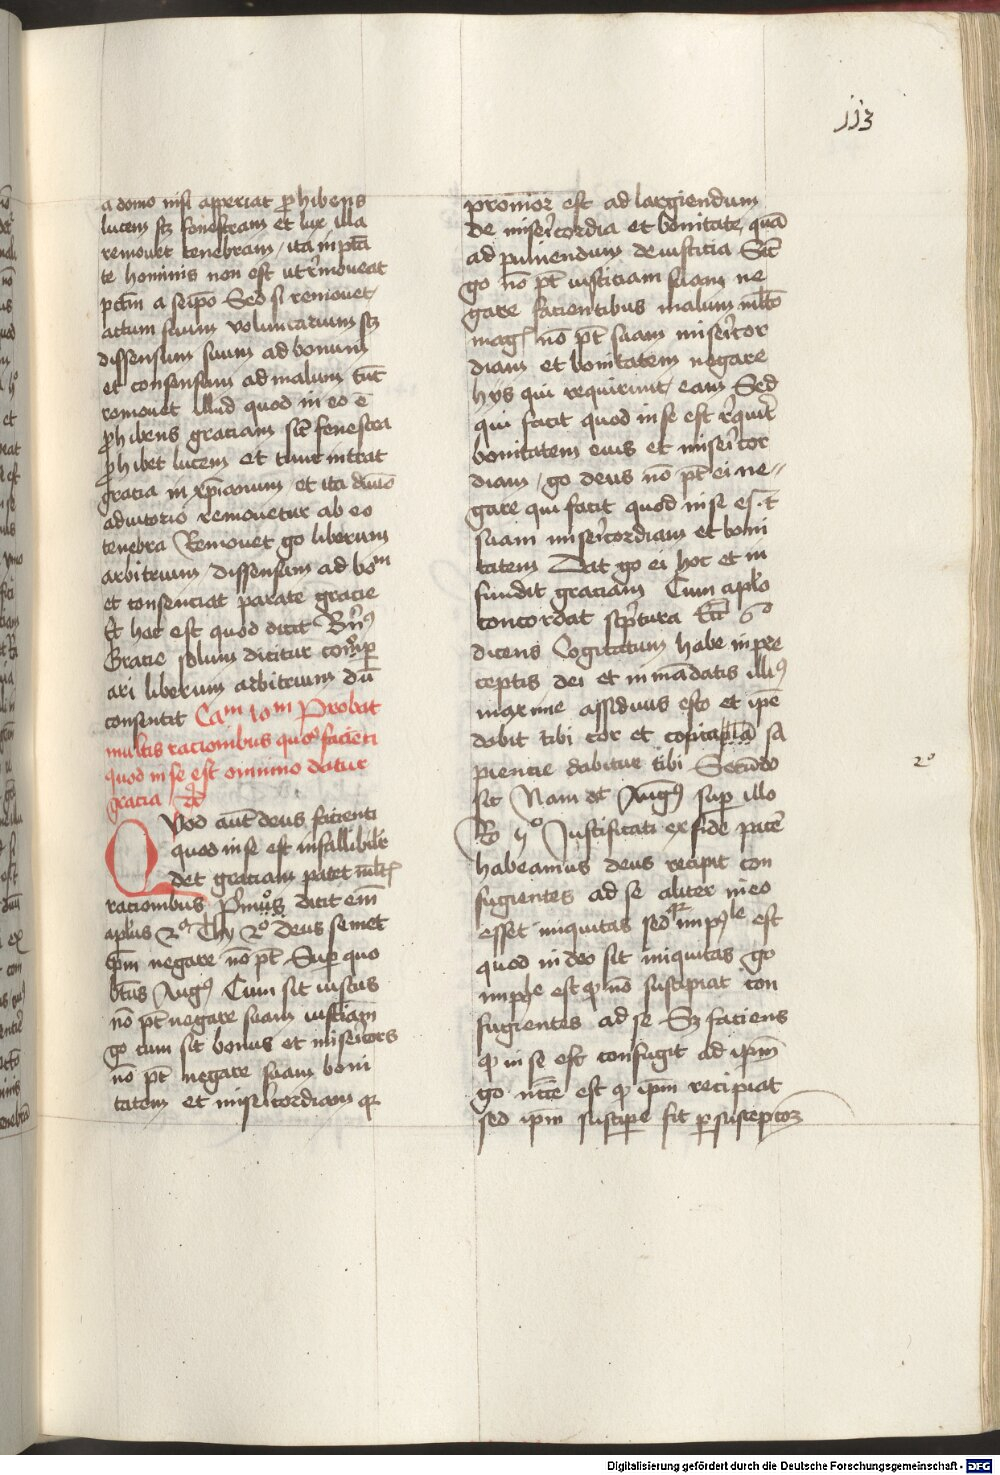 113
a domo nisi aperiat ꝓhibens
lucem scꝫ fenestram et lux illa
remouet tenebram / ita in ptāte
te hominis non est ut rͥmoueat
pctm̄ a seip̄o Sed si remouet
actum suum voluntarium scꝫ
dissensum suum ad bonum
et consensum ad malum tūc
remouet illud quod in eo ē
ꝓhibens graciam sic̄ fenestra
ꝓhibet lucem et tunc intrat
gracia in xp̄ianum et ita diuīo
adiutorio remouetur ab eo
tenebra Remouet gͦ liberum
arbitrium / dissensum ad boͫ
et consenciat parate gracie
Et hoc est quod dicit Br̄n9
Gracie solum dicitur coopͥ
ari liberum arbitrium dū
consentit Caͫ 10ͫ Probat
multis racionibus qͦ facienti
quod in se est omnino datur
gracia / 
Quod aūt deus facienti
quod in se est infallibilit͛
det graciam patet mͥlt
racionibus Primo dicit em̄
apl̄us 2ª Thy 2º Deus semet
ip̄m negare nō pt̄ Suꝑ quo
bt̄us Aug9 Cum sit iustus
nō pt̄ negare suam iusticiam
gͦ cum sit bonus et misericors
nō pt̄ negare suam boni
tatem et misericordiam qꝛ
promor est ad largiendum
de misericordia et bonitate quā
ad puniendum de iusticia Sic̄
gͦ nō pt̄ iusticiam suam ne
gare facientibus malum mͥlto
mag nō pt̄ suam misericor
diam et bonitatem negare
hys qui requirunt eam Sed
qui facit quod in se est rͥquirit
bonitatem eius et misericor
diam / gͦ deus nō pt̄ ei ne//
gare qui facit quod in se est
suam misericordiam et boni
tatem Dat gͦ ei hoc et in
fundit graciam Cum apl̄o
concordat scrͥptura Ecc̄i 6º
dicens Cogitatum habe in pre
ceptis dei et in mādatis illi9
maxime assiduus esto et ip̄e
dabit tibi cor et copia sa
piencie dabitur tibi Secūdo
2º
sic Nam dt̄ Aug9 suꝑ illo
Ro yº Iustificati ex fide pacē
habeamus deus recipit con
fugientes ad se aliter in eo
esset iniquitas sed imposle est
quod in deo sit iniquitas gͦ
impōle est ꝙ nō suscipiat con
fugientes ad se Sꝫ faciens
ꝙ in se est confugit ad ip̄m
gͦ nc̄ce est ꝙ ip̄m recipiat
sed ip̄m suscipe fit ꝑ susceptōꝫ
Digitalisierung gefördert durch die Deutsche Forschungsgemeinschaft - DFG